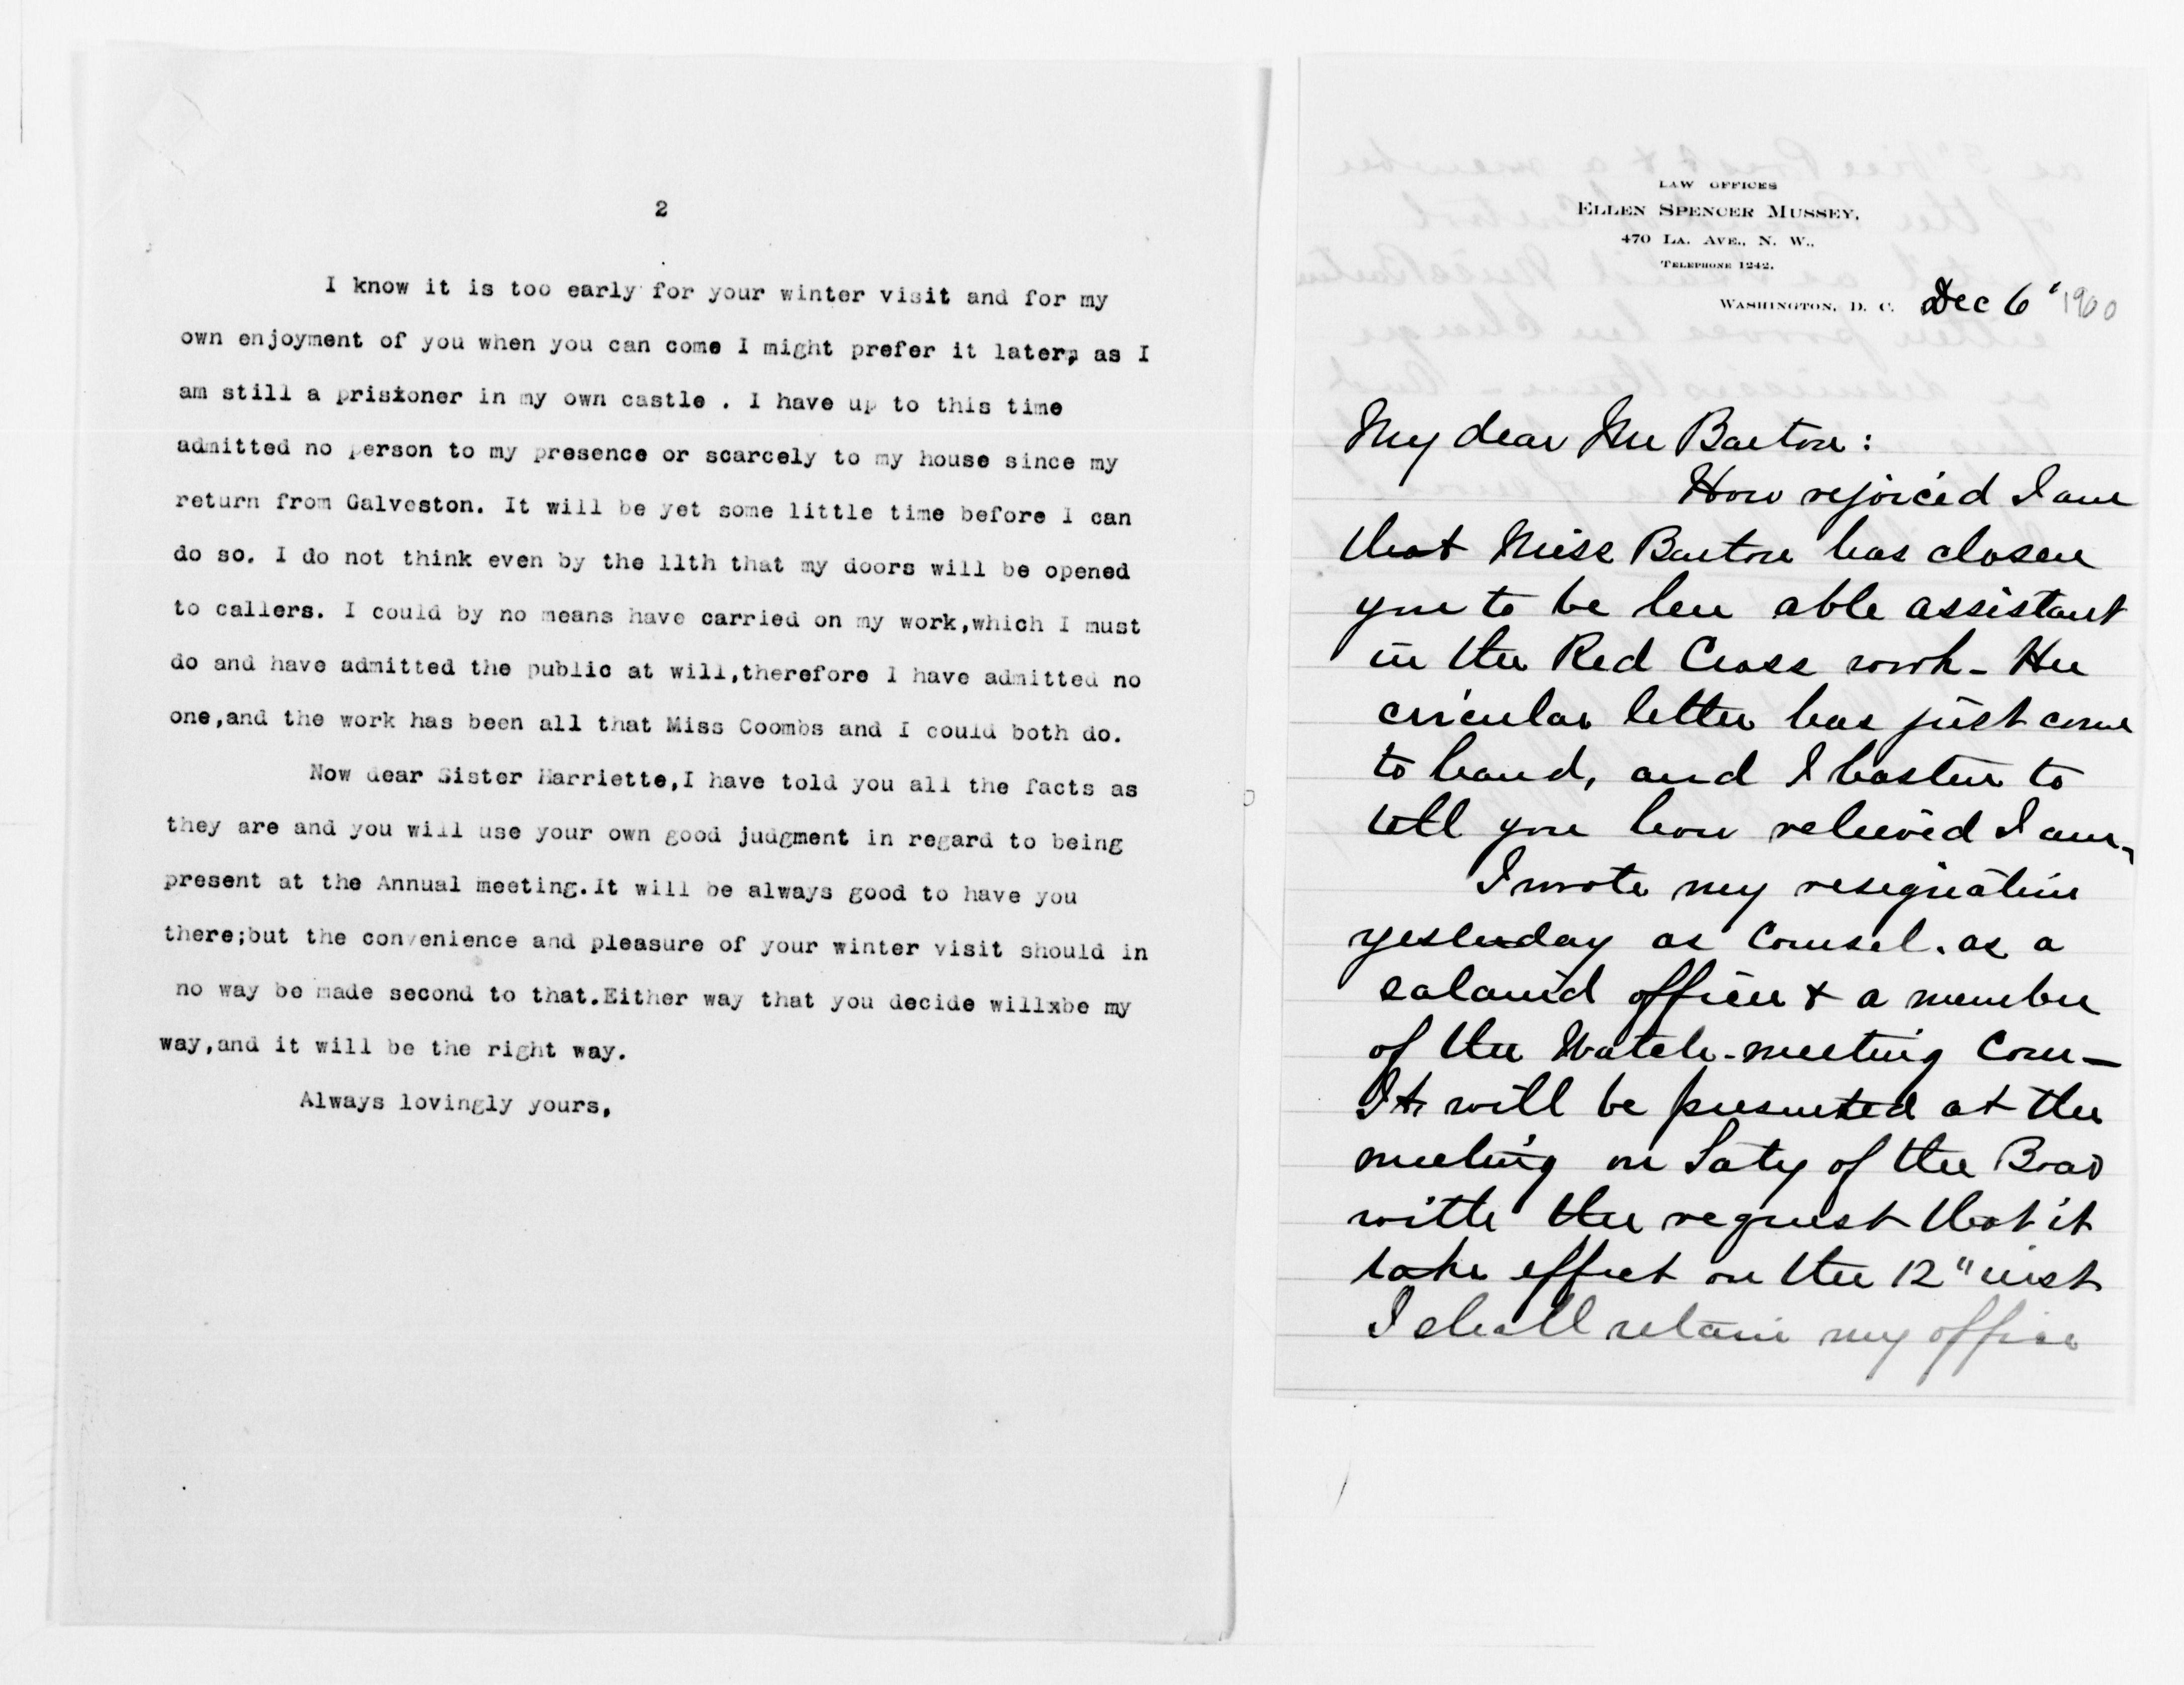 2
I know it is too early for your winter visit and for my
own enjoyment of you when you can come I might prefer it later, as I
am still a prisioner in my own castle . I have up to this time
admitted no person to my presence or scarcely to my house since my
return from Galveston. It will be yet some little time before I can
do so. I do not think even by the 11th that my doors will be opened
to callers. I could by no means have carried on my work,which I must
do and have admitted the public at will,therefore I have admitted no
one,and the work has been all that Miss Coombs and I could both do.
Now dear Sister Harriette,I have told you all the facts as
they are and you will use your own good judgment in regard to being
present at the Annual meeting.It will be always good to have you
there;but the convenience and pleasure of your winter visit should in
no way be made second to that.Either way that you decide willxbe my
way,and it will be the right way.
Always lovingly yours,
LAW OFFICES
ELLEN SPENCER MUSSEY,
470 LA. AVE., N. W.,
TELEPHONE 1242.
WASHINGTON, D. C. Dec 6" 1900
My dear Mr Barton:
How rejoiced I am
that Miss Barton has chosen
you to be her able assistant
in the Red Cross work - Her
circular letter has just come
to hand, and I hasten to
tell you how relieved I am.
I wrote my resignation
yesterday as Counsel. as a
salaried officer & a member
of the Watch-meeting Com-
It will be presented at the
meeting on Saty of the Board
with the request that it
take effect on the 12" inst
I shall retain my office